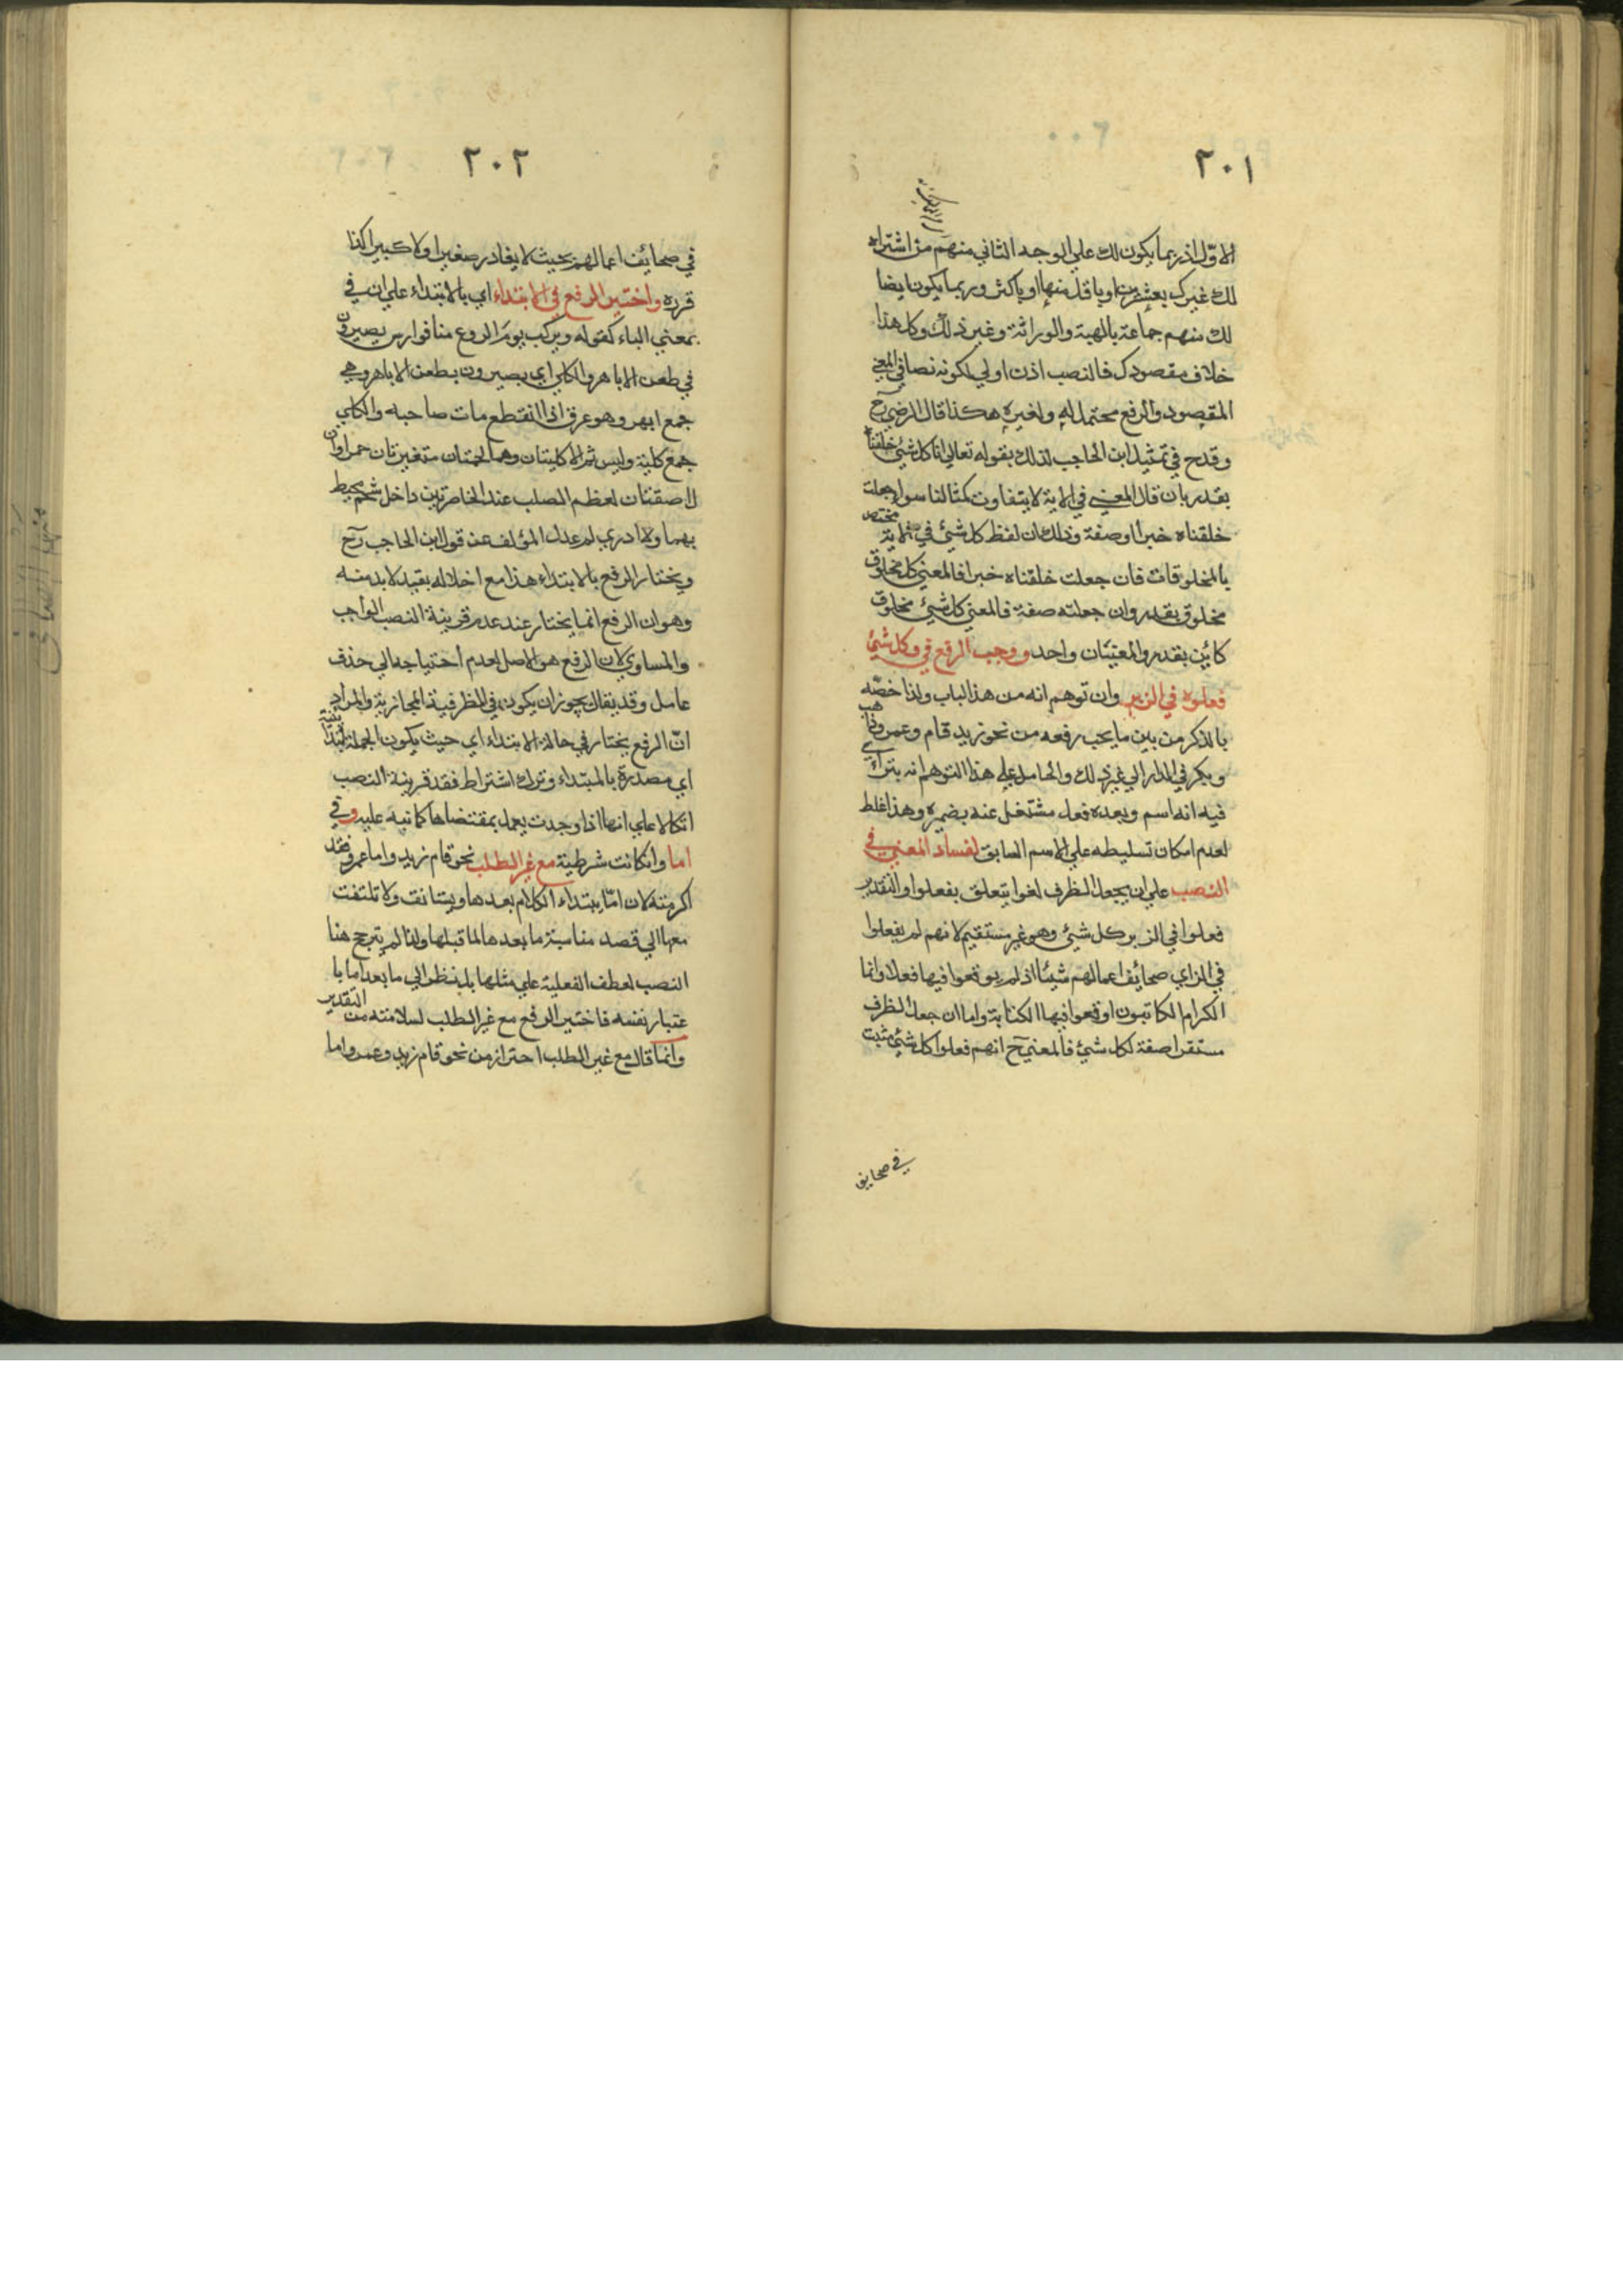 ٢٠١
الاول اذ ربما يكون لك على الوجه الثاني منهم من اشتراه
لك غيرك بعشرين او باقل منها او باكثر وربما يكون ايضا
لك منهم جماعة بالهبة والوراثة وغير ذلك وكل هذا
خلاف مقصودك فالنصب اذن اولي لكونه نصا في المعني
المقصود والرفع محتمل له ولغيره هكذا قال الرضي رح
وقدح في تمثيل ابن الحاجب لذلك بقوله تعالي انا كل شئ خلقناه
بقدر بان قال المعني في الاية لا يتفاوت كمثالنا سوا جعلت
خلقناه خبرا او صفة وذلك ان لفظ كل شئ في الاية مختص
بالمخلوقات فان جعلت خلقناه خبرا فالمعني كل مخلوق
مخلوق بقدر وان جعلته صفة فالمعني كل شئ مخلوق
كائن بقدر والمعنيان واحد ووجب الرفع في وكل شئ
فعلوه في الزبر وان توهم انه من هذا الباب ولذا خصه
بالذكر من بين ما يجب رفعه من نحو زيد قام وعمرو ذهب
وبكر في الدار الي غير ذلك والحامل علي هذا التوهم انه يترائي
فيه انه اسم وبعده فعل مشتغل عنه بضميره وهذا غلط
لعدم امكان تسليطه علي الاسم السابق لفساد المعني في
النصب علي ان يجعل الظرف لغوا يتعلق بفعلوا والتقدير
فعلوا في الزبر كل شئ وهو غير مستقيم لانهم لم يفعلوا
في الزاي صحائف اعمالهم شيئا اذ لم يوقعوا فيها فعلا وانما
الكرام الكاتبون اوقعوا فيها الكتابة واما ان جعل الظرف
مستقرا صفة لكل شئ فالمعني ح انهم فعلوا كل شئ مثبت
في صحايف
٢٠٢
في صحائف اعمالهم بحيث لا يغادر صغيرا ولا كبيرا كذا
قرره واختير الرفع في الابتداء اي بالابتداء علي ان في
بمعني الباء كقوله ويركب يوم الروع منا فوارس بصيرون
في طعن الاباهر والكلي اي بصيرون بطعن الاباهر وهي
جمع ابهر وهو عرق اذا انقطع مات صاحبه والكلي
جمع كلية وليس ثم الا كليتان وهما لحمتان متغيرتان حمراوان
لاصقتان لعظم الصلب عند الخاصرتين داخل شحم محيط
بهما ولا ادري لم عدل المؤلف عن قول ابن الحاجب رح
ويختار الرفع بالابتداء هذا مع اخلاله بقيد لا بد منه
وهو ان الرفع انما يختار عند عدم قرينة النصب الواجب
والمساوي لان الرفع هو الاصل لعدم احتياجه الي حذف
عامل وقد يقال يجوز ان يكون في للظرفية المجازية والمراد
ان الرفع يختار في حالة الابتداء اي حيث يكون الجملة ابتدائية
اي مصدرة بالمبتداء وترك اشتراط فقد قرينة النصب
اتكالا علي انها اذا وجدت يعمل بمقتضاها كما نبه عليه وفي
اما وان كانت شرطية مع غير الطلب نحو قام زيد واما عمرو فقد
اكرمته لان اما يبتداء الكلام بعدها ويستانف ولا تلتفت
معها الي قصد مناسبة ما بعدها لما قبلها ولذا لم يترجح هنا
النصب لعطف الفعلية علي مثلها بل ينظر الي ما بعد اما با
عتبار نفسه فاختير الرفع مع غير الطلب لسلامته من التقدير
وانما قال مع غير الطلب احترازا من نحو قام زيد وعمرو واما